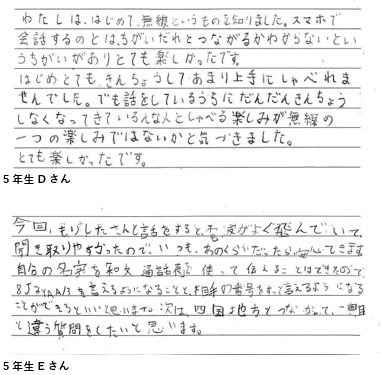 わたしは、はじめて、無線というものを知りました。スマホで
会話するのとはちがいだれとつながるかわからないとい
うちがいがありとても楽しかったです。
はじめとても、きんちょうしてあまり上手にしゃべれま
せんでした。でも話をしているうちにだんだんきんちょう
しなくなってきているんな人としゃべる楽しみが無線の
一つの楽しみではないかと気づきました。
とても楽しかったです。
5年生Dさん
今回、もりしたさんと話をすると、電波がよく飛んでいて、
聞き取りやすかったので、いつも、あのくらいだったら安心できます。
自分の名字を和文通話表を使って伝えることはできたので
を言えるようになることと、相手の番号をすっと言えるようになる
ことができるといいと思います。次は、四国地方とつながって、一風
と違う質問をしたいと思います。
5年生Eさん